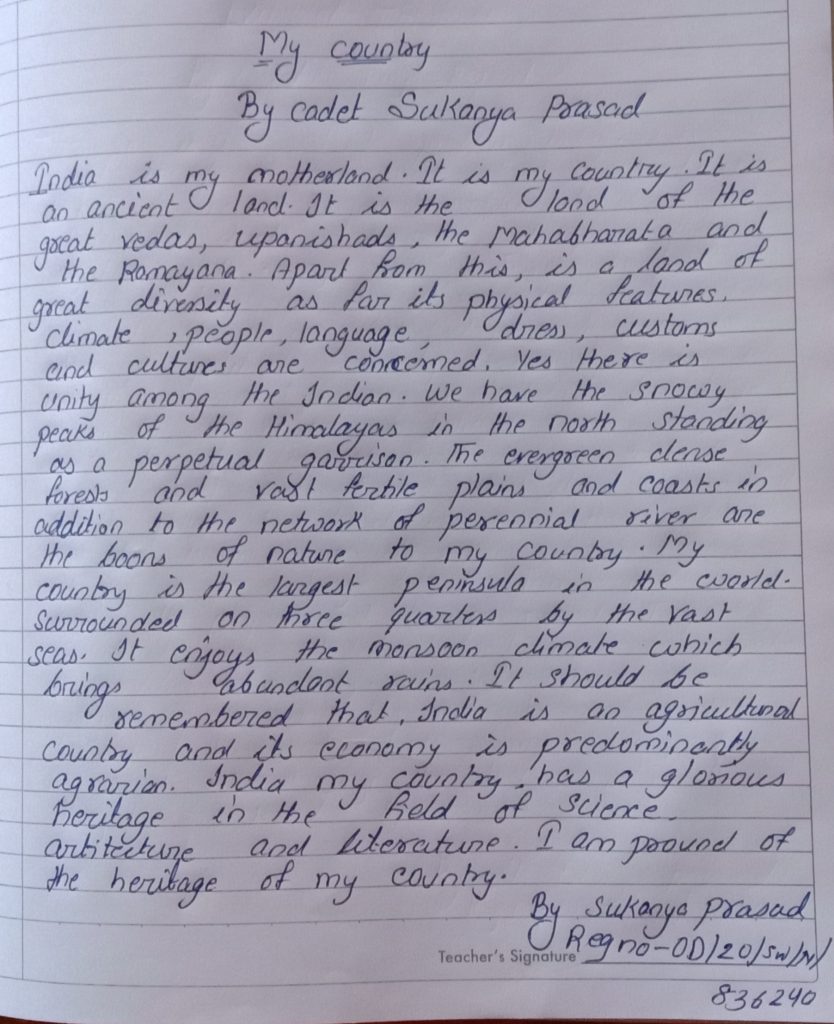 My country
By cadet Sukanya Prasad
India is my motherland. It is my country. It is
an ancient land. It is the land of the
great vedas, upanishads, the Mahabharata and
the Ramayana. Apart from this, is a land of
great diversity as far its physical features,
climate, people, language, dress, customs
and cultures are concerned. Yes there is
unity among the Indian. We have the snowy
peaks of the Himalayas in the north standing
as a perpetual garrison. The evergreen dense
forests and vast fertile plains and coasts in
addition to the network of perennial river are
the boons of nature to my country. My
country is the largest peninsula in the world.
surrounded on three quarters by the vast
seas. It enjoys the monsoon climate which
brings abundant rains. It should be
remembered that, India is an agricultural
country and its economy is predominantly
agrarian. India my country, has a glorious
heritage in the field of science,
artitecture and literature. I am pround of
the heritage of my country.
By Sukanya Prasad
Regno-OD/20/SW/N/
836240
Teacher's Signature